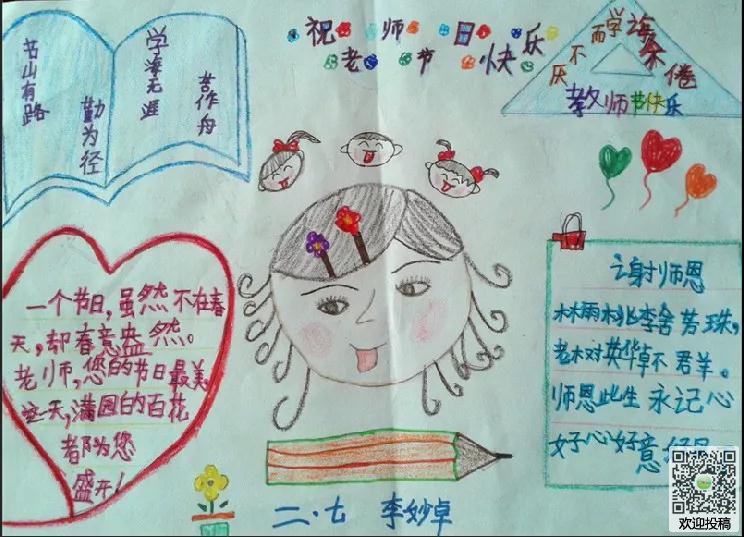 苦山有路
勤为径
学海无涯
苦作舟
祝老师节日快乐
学而不厌
海不倦
教师节快乐
一个节日,虽然不在春
天,却春意盎然。
老师,您的节日最美
这一天,满园的百花
都为您
盛开!
谢师恩
林雨桃李舍芳珠,
老木对英华卓不群。
师恩此生永记心
好心好意
二·七 李妙卓
欢迎投稿